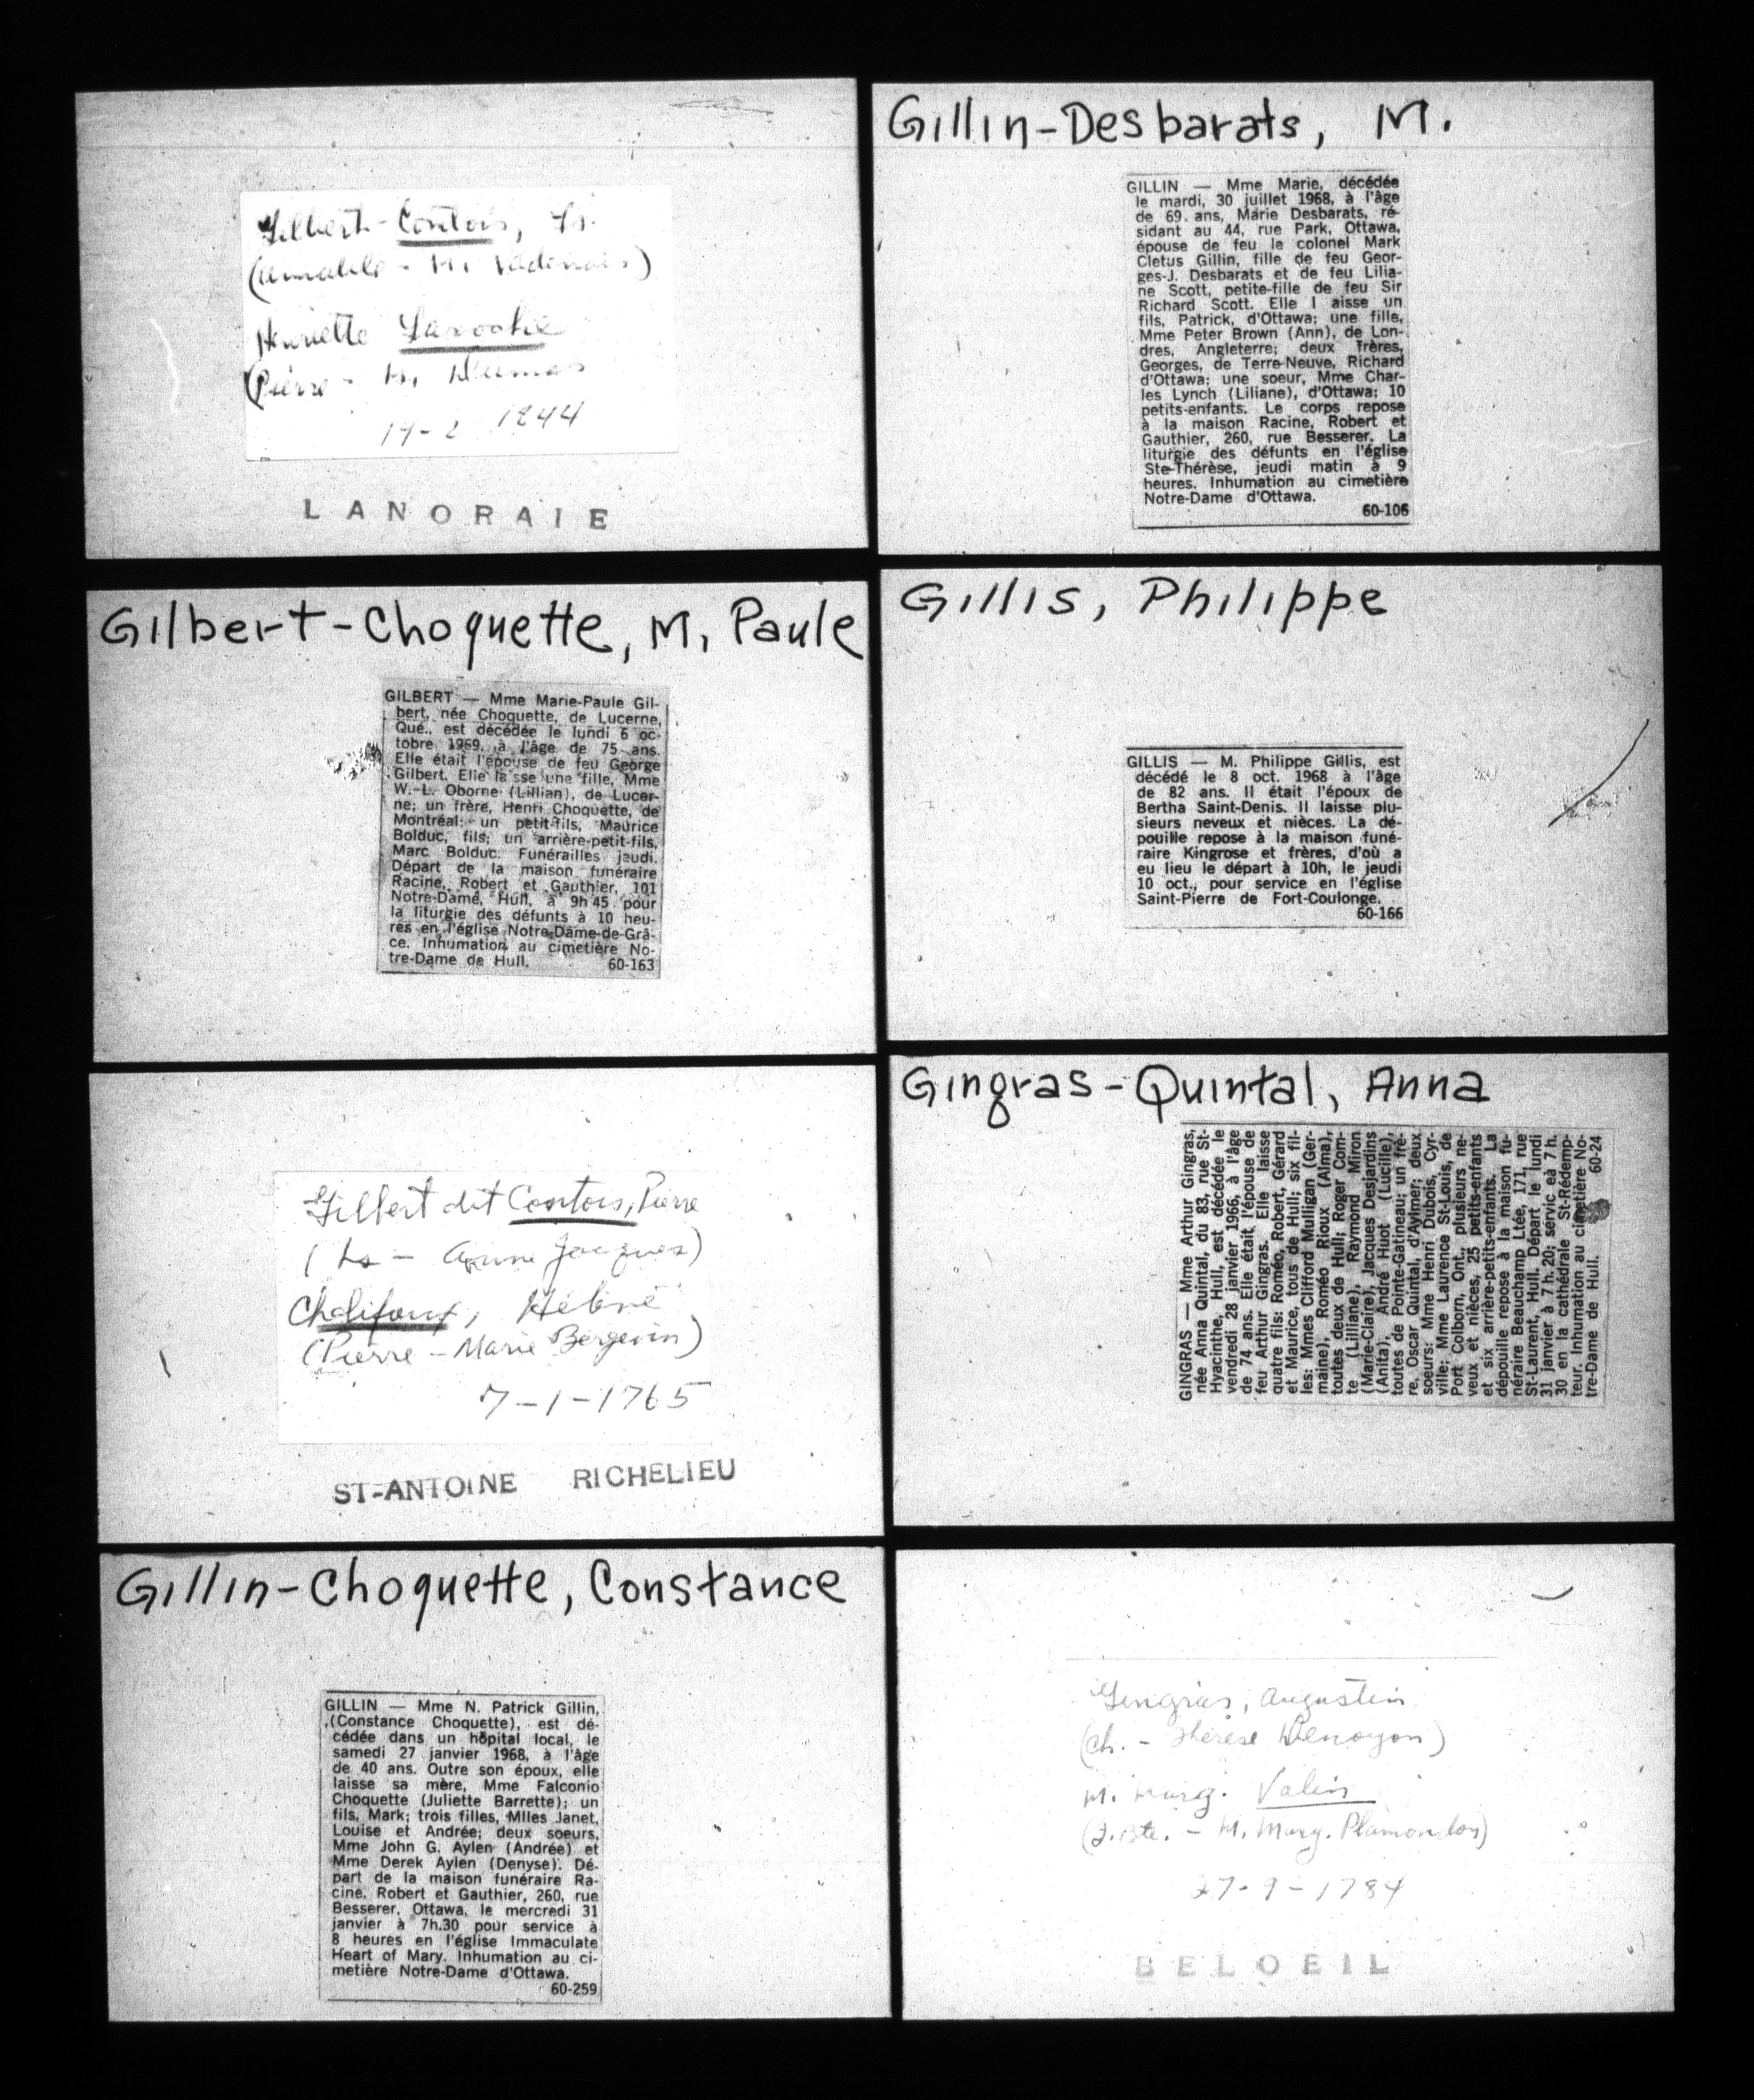 Gilbert-Contois, Fs.
(Amable - M. Vadenais)
Henriette Laroche
(Pierre - M. Dumas
19-2 1844
LANORAIE
Gilbert-Choquette, M. Paule
GILBERT — Mme Marie-Paule Gil-
bert, née Choquette, de Lucerne,
Qué., est décédée le lundi 6 oc-
tobre 1969, à l'âge de 75 ans.
Elle était l'épouse de feu George
Gilbert. Elle laisse une fille, Mme
W.-L. Oborne (Lillian), de Lucer-
ne; un frère, Henri Choquette, de
Montréal; un petit-fils, Maurice
Bolduc, fils; un arrière-petit-fils,
Marc Bolduc. Funérailles jeudi.
Départ de la maison funéraire
Racine, Robert et Gauthier, 101
Notre-Dame, Hull, à 9h 45 pour
la liturgie des défunts à 10 heu-
res en l'église Notre-Dame-de-Grâ-
ce. Inhumation au cimetière No-
tre-Dame de Hull. 60-163
Gilbert dit Contois, Pierre
(Ls - Anne Jacques)
Chalifoux, Hélène
(Pierre - Marie Bergevin)
7-1-1765
ST-ANTOINE RICHELIEU
Gillin-Choquette, Constance
GILLIN — Mme N. Patrick Gillin,
(Constance Choquette), est dé-
cédée dans un hôpital local, le
samedi 27 janvier 1968, à l'âge
de 40 ans. Outre son époux, elle
laisse sa mère, Mme Falconio
Choquette (Juliette Barrette); un
fils, Mark; trois filles, Mlles Janet,
Louise et Andrée; deux soeurs,
Mme John G. Aylen (Andrée) et
Mme Derek Aylen (Denyse). Dé-
part de la maison funéraire Ra-
cine, Robert et Gauthier, 260, rue
Besserer, Ottawa, le mercredi 31
janvier à 7h.30 pour service à
8 heures en l'église Immaculate
Heart of Mary. Inhumation au ci-
metière Notre-Dame d'Ottawa.
60-259
Gillin-Desbarats, M.
GILLIN — Mme Marie, décédée
le mardi, 30 juillet 1968, à l'âge
de 69. ans, Marie Desbarats, ré-
sidant au 44, rue Park, Ottawa,
épouse de feu le colonel Mark
Cletus Gillin, fille de feu Geor-
ges-J. Desbarats et de feu Lilia-
ne Scott, petite-fille de feu Sir
Richard Scott. Elle l aisse un
fils, Patrick, d'Ottawa; une fille,
Mme Peter Brown (Ann), de Lon-
dres, Angleterre; deux frères,
Georges, de Terre-Neuve, Richard
d'Ottawa; une soeur, Mme Char-
les Lynch (Liliane), d'Ottawa; 10
petits-enfants. Le corps repose
à la maison Racine, Robert et
Gauthier, 260, rue Besserer. La
liturgie des défunts en l'église
Ste-Thérèse, jeudi matin à 9
heures. Inhumation au cimetière
Notre-Dame d'Ottawa.
60-106
Gillis, Philippe
GILLIS — M. Philippe Gillis, est
décédé le 8 oct. 1968 à l'âge
de 82 ans. Il était l'époux de
Bertha Saint-Denis. Il laisse plu-
sieurs neveux et nièces. La dé-
pouille repose à la maison funé-
raire Kingrose et frères, d'où a
eu lieu le départ à 10h, le jeudi
10 oct., pour service en l'église
Saint-Pierre de Fort-Coulonge.
60-166
Gingras-Quintal, Anna
GINGRAS — Mme Arthur Gingras,
née Anna Quintal, du 83, rue St-
Hyacinthe, Hull, est décédée le
vendredi 28 janvier 1966, à l'âge
de 74 ans. Elle était l'épouse de
feu Arthur Gingras. Elle laisse
quatre fils: Roméo, Robert, Gérard
et Maurice, tous de Hull; six fil-
les: Mmes Clifford Mulligan (Ger-
maine), Roméo Rioux (Alma),
toutes deux de Hull; Roger Com-
te (Lilliane), Raymond Miron
(Marie-Claire), Jacques Desjardins
(Anita), André Huot (Lucille),
toutes de Pointe-Gatineau; un frè-
re, Oscar Quintal, d'Aylmer; deux
soeurs: Mme Henri Dubois, Cyr-
ville; Mme Laurence St-Louis, de
Port Colborn, Ont., plusieurs ne-
veux et nièces, 25 petits-enfants
et six arrière-petits-enfants. La
dépouille repose à la maison fu-
néraire Beauchamp Ltée, 171, rue
St-Laurent, Hull. Départ le lundi
31 janvier à 7 h. 20; servic eà 7 h.
30 en la cathédrale St-Rédemp-
teur. Inhumation au cimetière No-
tre-Dame de Hull. 60-24
Gingras, Augustin
(Ch. - Thérèse Denoyon)
M. Marg. Valin
(J. Bte. - M. Marg. Plamondon)
27-9-1784
BELOEIL